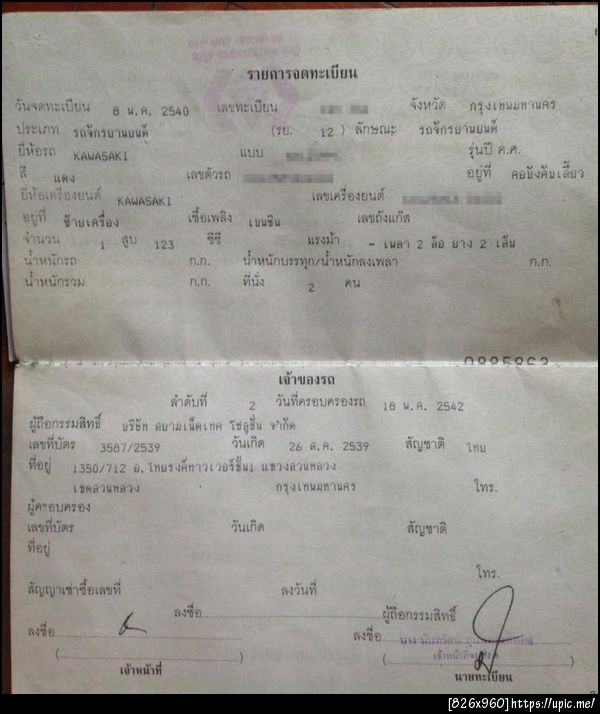 รายการจดทะเบียน
วันจดทะเบียน 8 พ.ค. 2540 เลขทะเบียน จังหวัด กรุงเทพมหานคร
ประเภท รถจักรยานยนต์ (รย. 12 ) ลักษณะ รถจักรยานยนต์
ยี่ห้อรถ KAWASAKI แบบ รุ่นปี ค.ศ.
สี แดง เลขตัวรถ อยู่ที่ คอบังคับเลี้ยว
ยี่ห้อเครื่องยนต์ KAWASAKI เลขเครื่องยนต์
อยู่ที่ ซ้ายเครื่อง เชื้อเพลิง เบนซิน เลขถังแก๊ส
จำนวน 1 สูบ 123 ซีซี แรงม้า - เพลา 2 ล้อ ยาง 2 เส้น
น้ำหนักรถ ก.ก. น้ำหนักบรรทุก/น้ำหนักลงเพลา ก.ก.
น้ำหนักรวม ก.ก. ที่นั่ง 2 คน
0885863
เจ้าของรถ
ลำดับที่ 2 วันที่ครอบครองรถ 18 พ.ค. 2542
ผู้ถือกรรมสิทธิ์ บริษัท สยามเน็ตเทค โซลูชั่น จำกัด
เลขที่บัตร 3587/2539 วันเกิด 26 ส.ค. 2539 สัญชาติ ไทย
ที่อยู่ 1350/712 อ.ไทยรงค์ทาวเวอร์ชั้น1 แขวงสวนหลวง
เขตสวนหลวง กรุงเทพมหานคร โทร.
ผู้ครอบครอง
เลขที่บัตร วันเกิด สัญชาติ
ที่อยู่
โทร.
สัญญาเช่าซื้อเลขที่ ลงวันที่
ลงชื่อ ผู้ถือกรรมสิทธิ์
ลงชื่อ ลงชื่อ
เจ้าหน้าที่ นายทะเบียน
[826x960]https://upic.me/